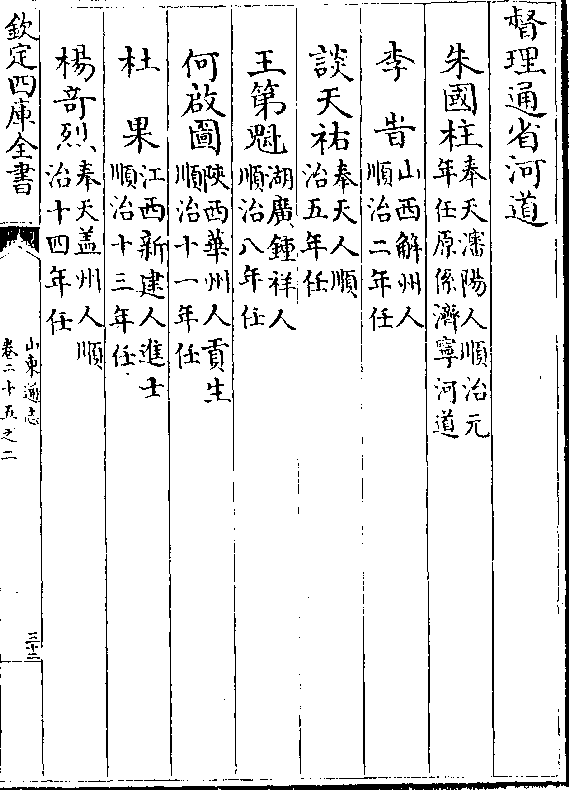 督理通省河道
朱國柱奉天瀋陽人順治元年任原係濟寧河道
李㫖山西解州人順治二年任
談天祐奉天人順治五年任
王第魁湖廣鍾祥人順治八年任
何啟圖陜西華州人貢生順治十一年任
杜果江西新建人進士順治十三年任
楊竒烈奉天盖州人順治十四年任
欽定四庫全書
山東通志
卷二十五之二
三十二